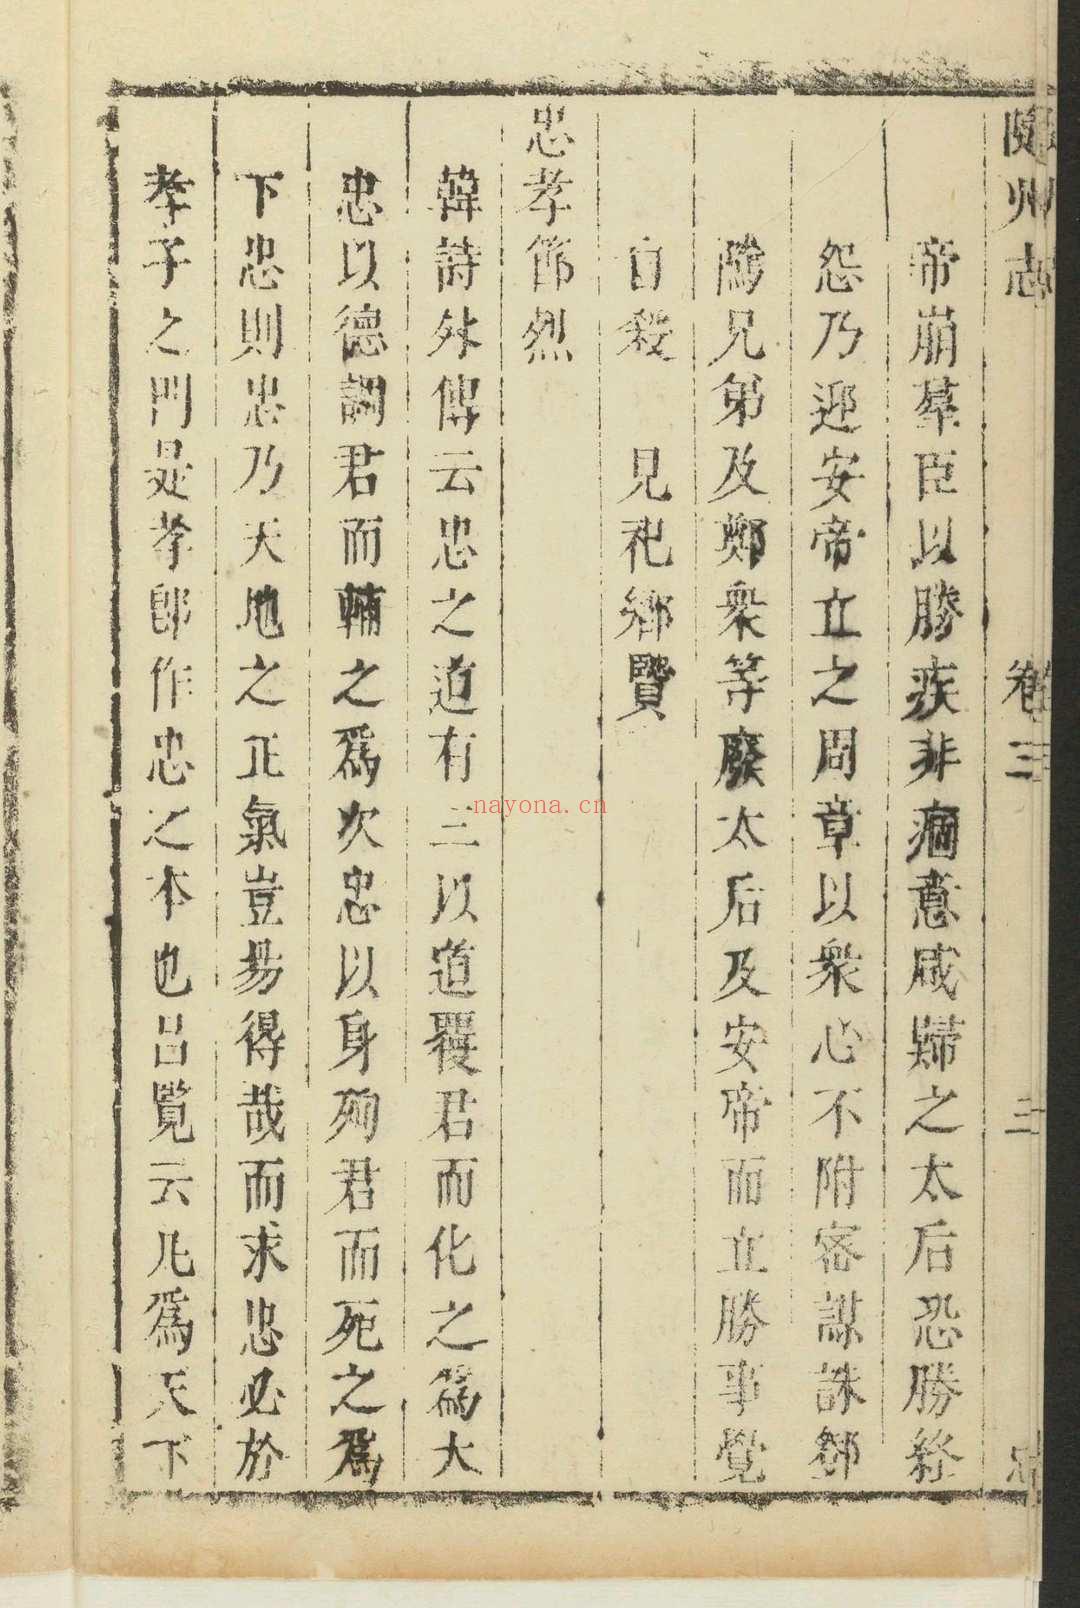 隨州志 卷三 三
帝崩羣臣以勝疾非痼意咸歸之太后恐勝終
怨乃迎安帝立之周章以衆心不附密謀誅鄧
隲兄弟及鄭衆等廢太后及安帝而立勝事覺
自殺 見祀鄉賢
忠孝節烈
韓詩外傳云忠之道有三以道覆君而化之為大
忠以德調君而輔之為次忠以身殉君而死之為
下忠則忠乃天地之正氣豈易得哉而求忠必於
孝子之門是孝即作忠之本也呂覽云凡為天下
nayona.cn